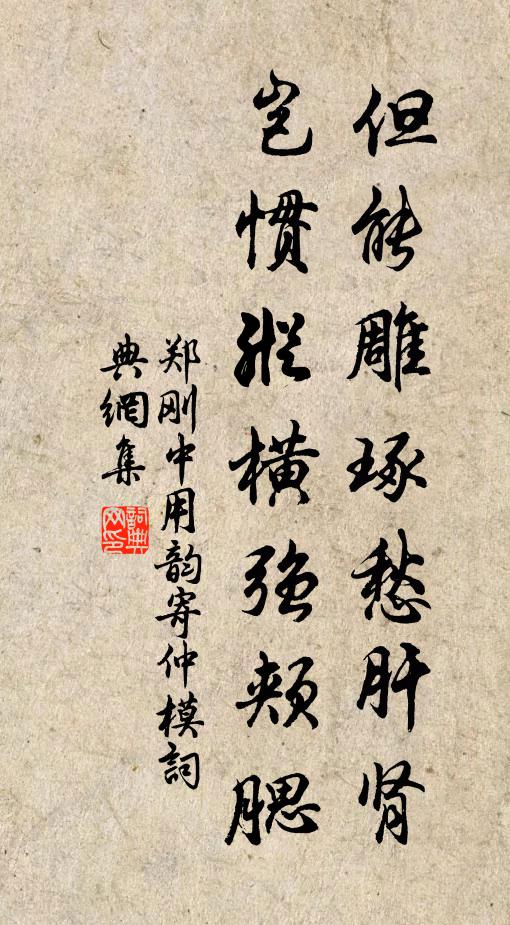 但能雕琢愁肝肾
岂惯纵横强颊腮
郑刚中用韵寄仲模词
典網集
詞典网印